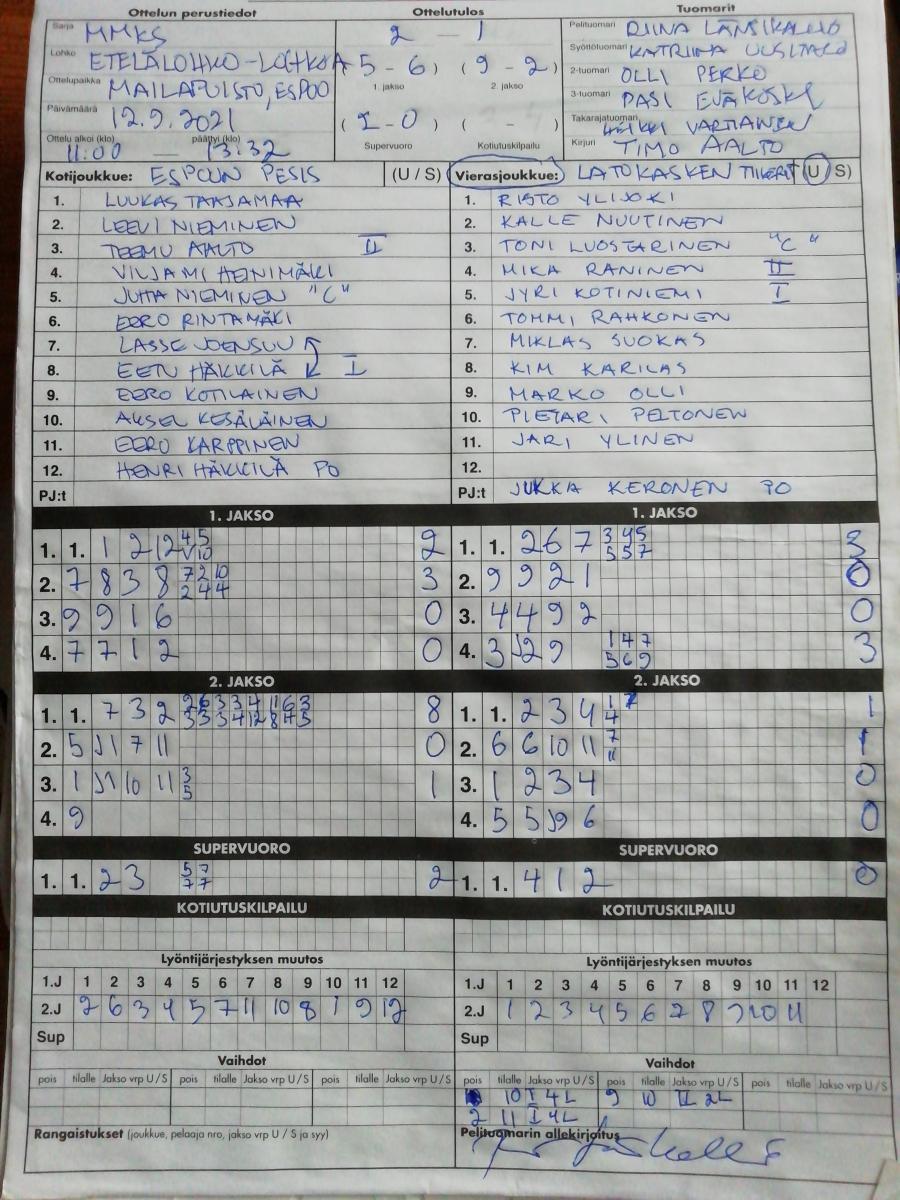 Ottelun perustiedot
Sarja MMKS
Lohko ETELÄLOHKO-LOHKO A
Ottelupaikka MAILAPUISTO, ESPOO
Päivämäärä 12.9.2021
Ottelu alkoi (klo) päättyi (klo)
11:00 — 13:32
Ottelutulos
2 — 1
(5 - 6) (9 - 2)
1. jakso 2. jakso
(2 - 0) ( - )
Supervuoro Kotiutuskilpailu
Tuomarit
Pelituomari RIINA LÄNSIKALLIO
Syöttötuomari KATRIINA UUSITALO
2-tuomari OLLI PERKO
3-tuomari PASI EVÄKOSKI
Takarajatuomari HEIKKI VARTIAINEN
Kirjuri TIMO AALTO
Kotijoukkue: ESPOON PESIS (U / S)
1. LUUKAS TAAJAMAA
2. LEEVI NIEMINEN
3. TEEMU AALTO II
4. VILJAMI HEINIMÄKI
5. JUHA NIEMINEN "C"
6. EERO RINTAMÄKI
7. LASSE JOENSUU
8. EETU HÄKKILÄ I
9. EERO KOTILAINEN
10. AKSEL KESÄLÄINEN
11. EERO KARPPINEN
12. HENRI HÄKKILÄ PO
PJ:t
Vierasjoukkue: LATOKASKEN TIIKERIT (U / S)
1. RISTO YLIJOKI
2. KALLE NUUTINEN
3. TONI LUOSTARINEN "C"
4. MIKA RANINEN II
5. JYRI KOTINIEMI I
6. TOMMI RAHKONEN
7. MIKLAS SUOKAS
8. KIM KARILAS
9. MARKO OLLI
10. PIETARI PELTONEN
11. JARI YLINEN
12.
PJ:t JUKKA KERONEN PO
1. JAKSO
1. 1. 1 2 12 2
2. 7 8 3 8 7 2 10 3
2 4 4
3. 9 9 1 6 0
4. 7 7 1 2 0
1. JAKSO
1. 1. 2 6 7 3 4 5 3
5 5 7
2. 9 9 2 1 0
3. 4 4 9 2 0
4. 3 9 1 4 7 3
5 6 9
2. JAKSO
1. 1. 7 3 2 8
2. 5 7 11 0
3. 1 10 11 3 1
5
4. 9
2. JAKSO
1. 1. 2 3 4 1
2. 6 6 10 11 7 1
11
3. 1 2 3 4 0
4. 5 5 6 0
SUPERVUORO
1. 1. 2 3 5 7 2
7 7
SUPERVUORO
1. 1. 4 1 2 0
KOTIUTUSKILPAILU
KOTIUTUSKILPAILU
Lyöntijärjestyksen muutos
1.J 1 2 3 4 5 6 7 8 9 10 11 12
2.J 2 6 3 4 5 7 11 10 8 1 9 12
Sup
Lyöntijärjestyksen muutos
1.J 1 2 3 4 5 6 7 8 9 10 11 12
2.J 1 2 3 4 5 6 7 8 9 10 11
Sup
Vaihdot
pois tilalle Jakso vrp U / S pois tilalle Jakso vrp U / S pois tilalle Jakso vrp U / S
Vaihdot
pois tilalle Jakso vrp U / S pois tilalle Jakso vrp U / S pois tilalle Jakso vrp U / S
10 I 4L 9 10 II 2L
2 11 I 4L
Rangaistukset (joukkue, pelaaja nro, jakso vrp U / S ja syy)
Pelituomarin allekirjoitus